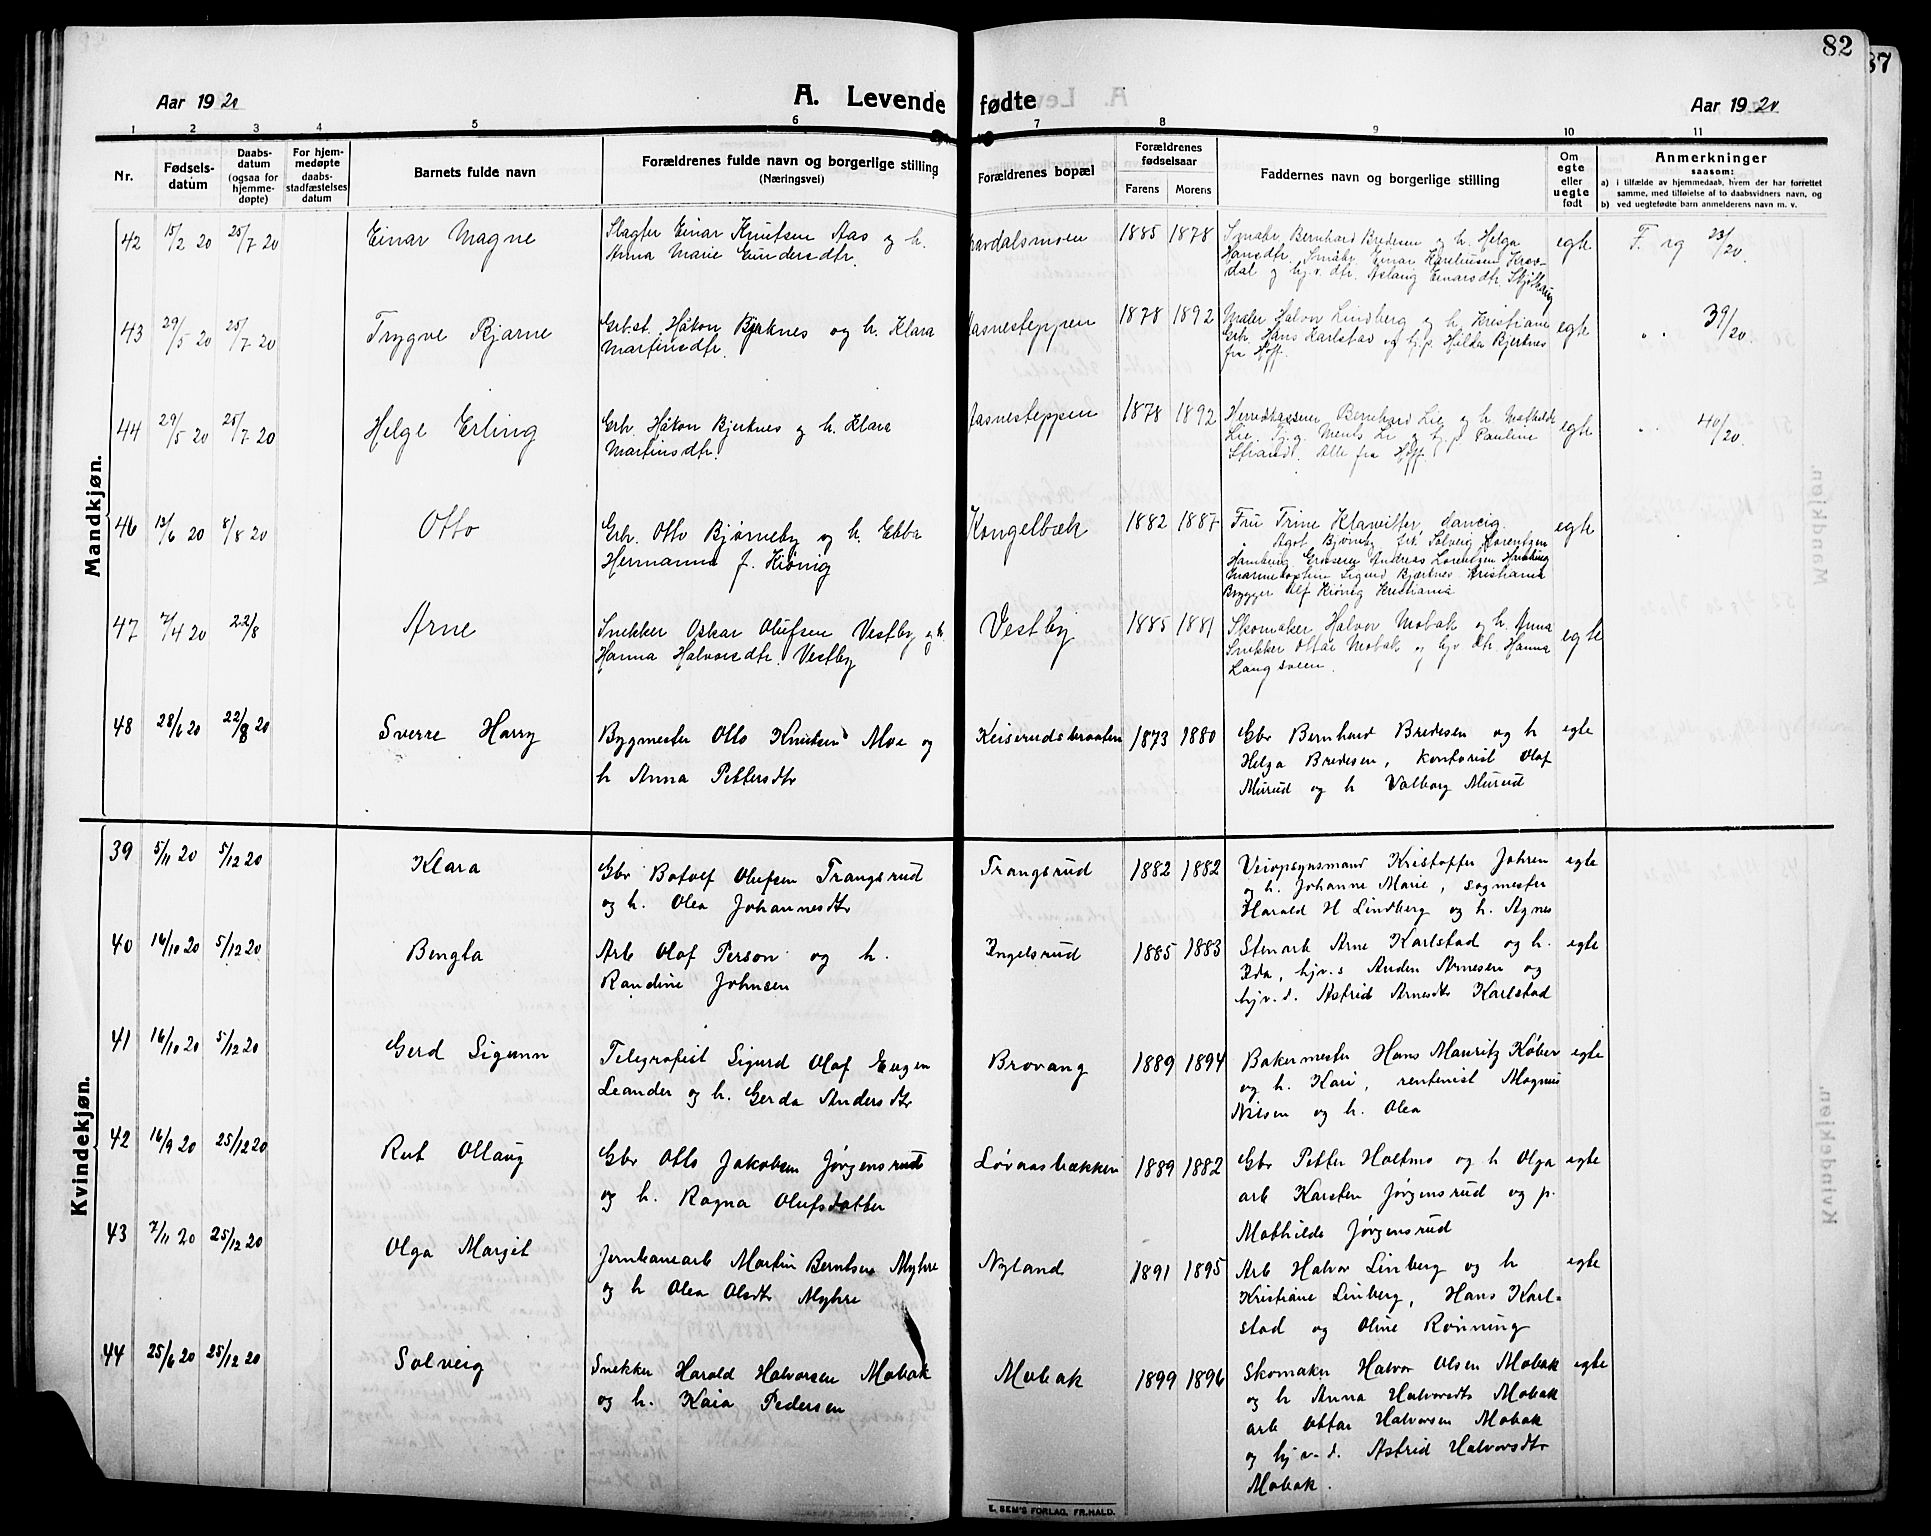 82
37
Aar 1920
A. Levende fødte
Aar 1920
1 2 3 4 5 6 7 8 9 10 11
Nr.
Fødsels-
datum
Daabs-
datum
(ogsaa for
hjemme-
døpte)
For hjem-
medøpte
daabs-
stadfæstelses
datum
Barnets fulde navn
Forældrenes fulde navn og borgerlige stilling
(Næringsvei)
Forældrenes bopæl
Forældrenes
fødselsaar
Farens Morens
Faddernes navn og borgerlige stilling
Om
egte
eller
uegte
født
Anmerkninger
saasom:
a) i tilfælde av hjemmedaab, hvem der har forrettet
samme, med tilføielse af to daabsvidners navn, og
b) ved uegtefødte barn anmelderens navn m. v.
Mandkjøn.
42 15/2 20 25/7 20 Einar Magne
Slagter Einar Knutsen Aas og h.
Anna Marie Einersdtr.
avdalsmoen 1885 1878
Bernhard Bredesen og h. Helga
Hansdtr. Einar
dal og hjv. dtr. Aslaug Einarsdtr.
egte F. rg 23/20.
43 29/5 20 25/7 20 Trygve Bjarne
Grbst. Håkon Bjerknes og h. Klara
Martinsdtr.
asnesteppen 1878 1892
Maler Halvor Lindberg og h. Kristiane
Grb. Hans Karlstad og hjp. Hilda Bjerknes
fra Hoff.
egte " " 39/20.
44 29/5 20 25/7 20 Helge Erling
Grb. Håkon Bjerknes og h. Klara
Martinsdtr.
asnesteppen 1878 1892
Herredskasserer Bernhard Lie og h. Mathilde
Lie. hj.g. Lie og hj.p. Pauline
Strand. Alle fra Hoff.
egte " " 40/20.
46 13/6 20 8/8 20 Otto
Grb. Otto Bjørneby og h. Ebba
Hermanna f. Kiønig
Kongelbæk 1882 1887
Fru Trine Klawitter, danzig.
" Agot Bjørneby frk. Solveig Lorentzen
Hamburg Grosserer Andreas Lorentzen Hamburg
Marinekaptein Sigurd Bjerknes Kristiania
Brygger Alf Kiønig Kristiania
egte
47 7/4 20 22/8 Arne
Snekker Oskar Olufsen Vestby og h.
Hanna Halvorsdtr. Vestby
Vestby 1885 1881
Skomaker Halvor Mobak og h. Anna
Snekker Ottar Mobak og hjv dtr. Hanna
Langsveen.
egte
48 28/6 20 22/8 20 Sverre Harry
Bygmester Otto Knutsen Moe og
h Anna Pettersdtr
Keiserudsbraaten 1873 1880
Gbr Bernhard Bredesen og h
Helga Bredesen, kontorist Olaf
Murud og h Valborg Murud
egte
Kvindekjøn.
39 5/11 20 5/12 20 Klara
Gbr Botolf Olufsen Trangsrud
og h. Olea Johannesdtr
Trangsrud 1882 1882
Veiopsynsmand Kristoffer Johren
og h. Johanne Marie, sagmester
Harald H Lindberg og h. Agnes
egte
40 16/10 20 5/12 20 Bengta
Arb Olof Person og h.
Randine Johnsen
Ingelsrud 1885 1883
Stenarb Arne Karlstad og h.
Ida, hjv.s Anden Arnesen og
hjv.d. Astrid Arnesdtr Karlstad
egte
41 16/10 20 5/12 20 Gerd Sigunn
Telegrafist Sigurd Olaf Eugen
Leander og h. Gerda Andersdtr
Brovang 1889 1894
Bakermester Hans Mauritz Køber
og h. Kari, rentenist Magnus
Nilsen og h. Olea
egte
42 16/9 20 25/12 20 Rut Ollaug
Gbr Otto Jakobsen Jørgensrud
og h. Ragna Olufsdatter
Løvaasbækken 1889 1882
Gbr Petter Holtmo og h Olga
arb Karsten Jørgensrud og p.
Mathilde Jørgensrud
egte
43 7/11 20 25/12 20 Olga Margit
Jernbanearb Martin Berntsen Myhre
og h Olea Olsdtr Myhre
Nyland 1891 1895
Arb Halvor Linberg og h
Kristiane Linberg, Hans Karl=
stad og Oline Rønning
egte
44 25/6 20 25/12 20 Solveig
Snekker Harald Halvorsen Mobak
og h. Kaia Pedersen
Mobak 1899 1896
Skomaker Halvor Olsen Mobak
og h Anna Halvorsdtr Mobak
arb Ottar Halvorsen Mobak
og hj v.d. Astrid Halvorsdtr
Mobak.
egte
E. SEM'S FORLAG, FR.HALD.